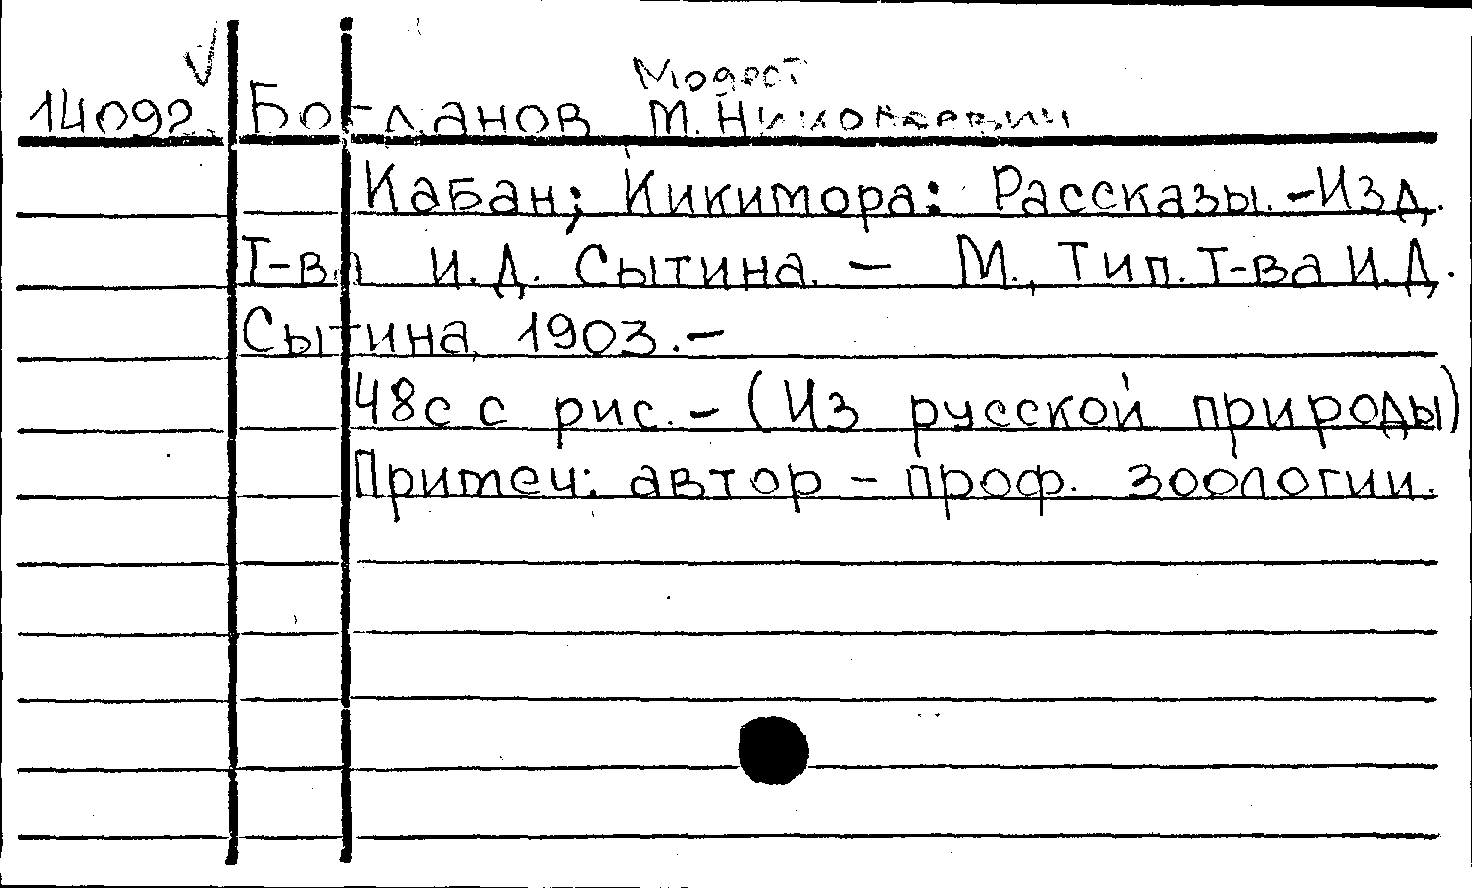 Модест
14092. Богданов М. Николаевич
Кабан; Кикимора: Рассказы. - Изд.
Т-ва И.Д. Сытина. - М., Тип. Т-ва И.Д.
Сытина, 1903. -
48с с рис. - (Из русской природы)
Примеч: автор - проф. зоологии.